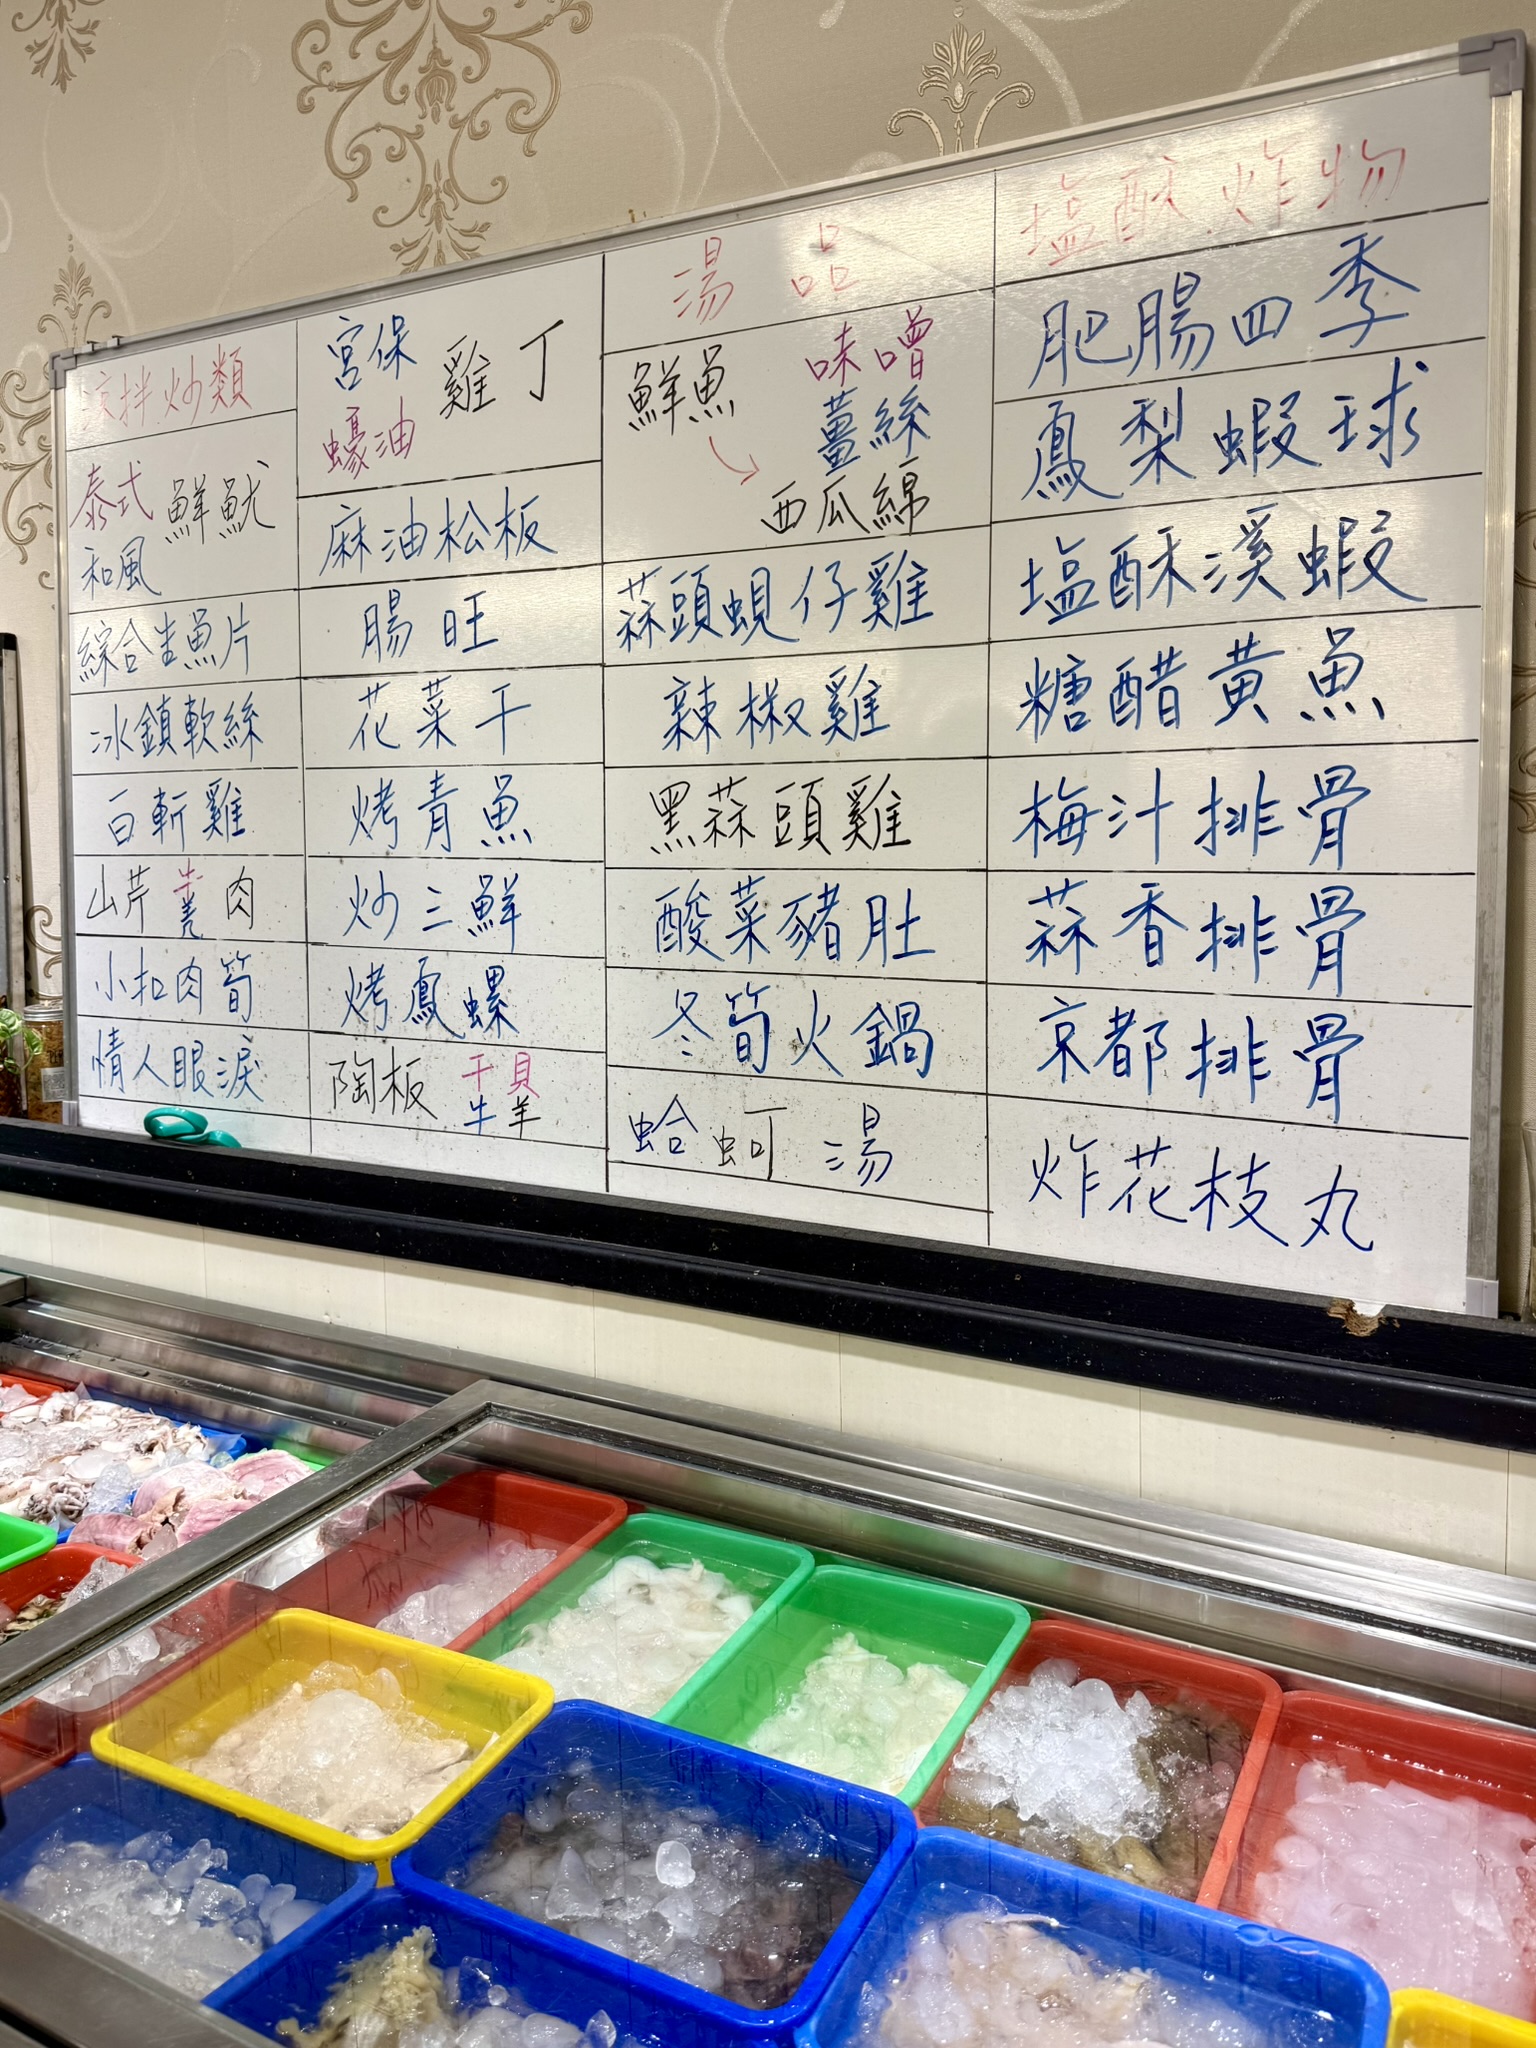 涼拌炒類
泰式 鮮魷
和風
綜合生魚片
冰鎮軟絲
白斬雞
山芹 牛羌 肉
小扣肉筍
情人眼淚
宮保 雞丁
蠔油
麻油松板
腸旺
花菜干
烤青魚
炒三鮮
烤鳳螺
陶板 干貝
牛 羊
湯品
鮮魚 味噌
薑絲
西瓜綿
蒜頭蜆仔雞
辣椒雞
黑蒜頭雞
酸菜豬肚
冬筍火鍋
蛤蚵湯
塩酥炸物
肥腸四季
鳳梨蝦球
塩酥溪蝦
糖醋黃魚
梅汁排骨
蒜香排骨
京都排骨
炸花枝丸